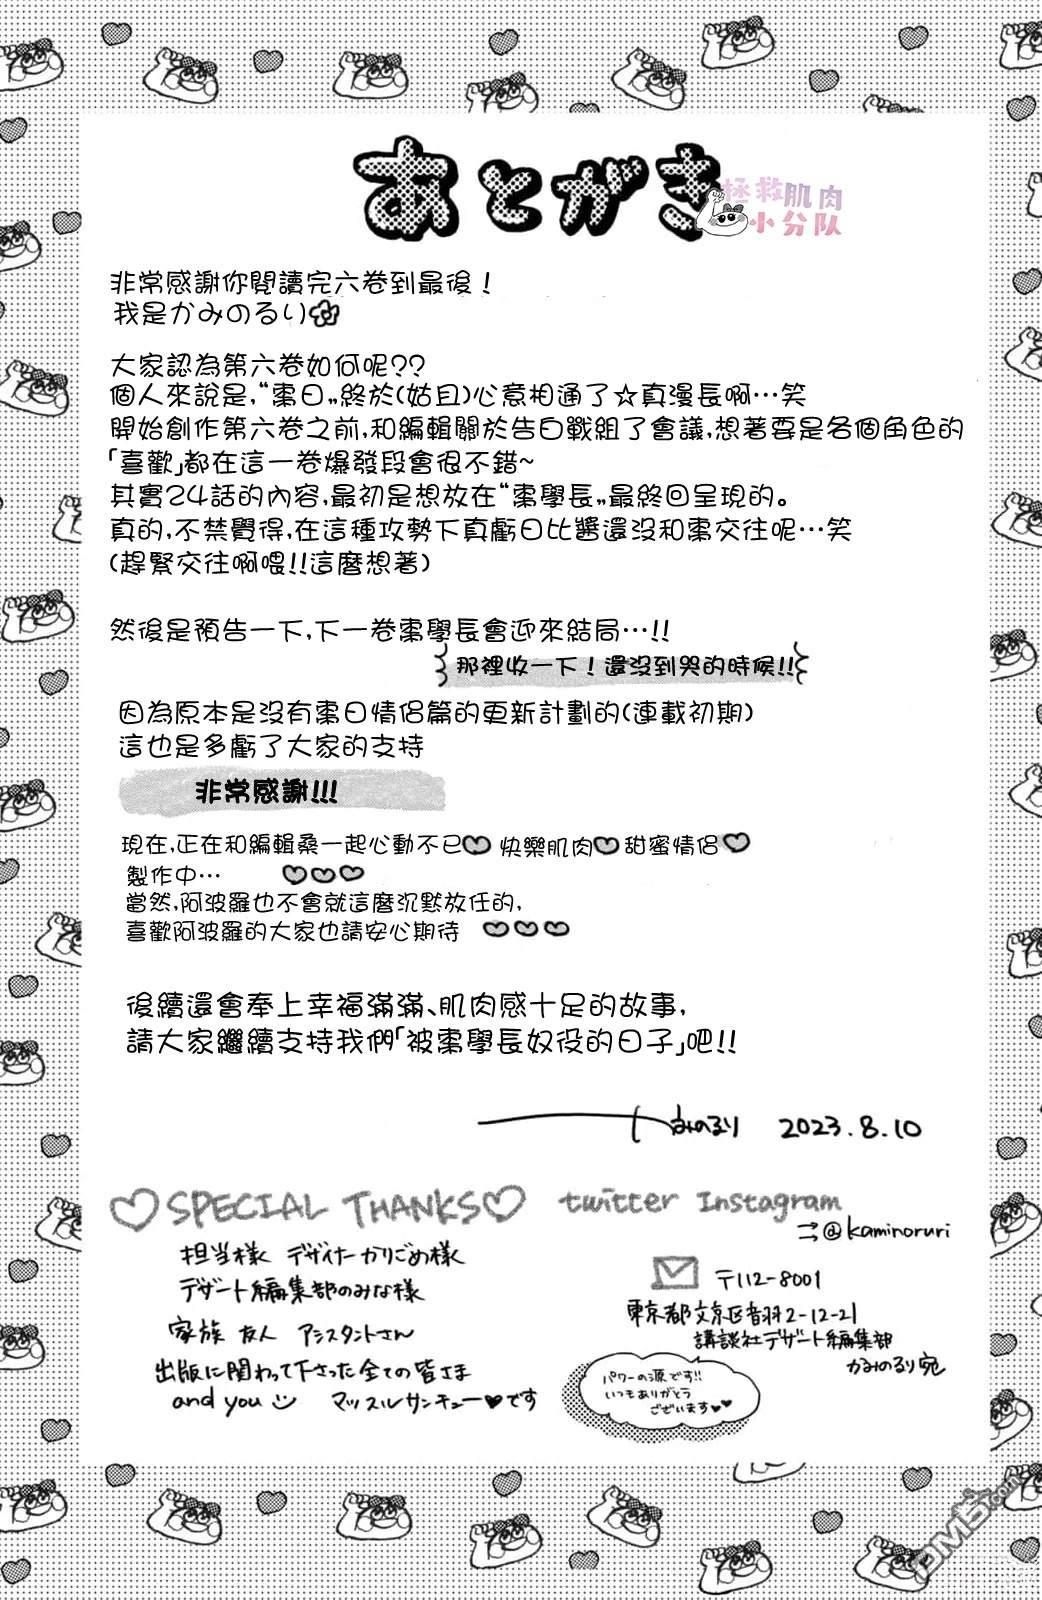 あとがき
拯救肌肉
小分队
非常感謝你閱讀完六卷到最後！
我是かみのるり
大家認為第六卷如何呢??
個人來說是,“棗日„終於(姑且)心意相通了☆真漫長啊…笑
開始創作第六卷之前,和編輯關於告白戰組了會議,想著要是各個角色的
「喜歡」都在這一卷爆發段會很不錯~
其實24話的內容,最初是想放在“棗學長„最終回呈現的。
真的,不禁覺得,在這種攻勢下真虧日比醬還沒和棗交往呢…笑
(趕緊交往啊喂!!這麼想著)
然後是預告一下,下一卷棗學長會迎來結局…!!
那裡收一下！還沒到哭的時候!!
因為原本是沒有棗日情侶篇的更新計劃的(連載初期)
這也是多虧了大家的支持
非常感謝!!!
現在,正在和編輯桑一起心動不已♡ 快樂肌肉♡ 甜蜜情侶♡
製作中… ♡♡♡
當然,阿波羅也不會就這麼沉默放任的,
喜歡阿波羅的大家也請安心期待 ♡♡♡
後續還會奉上幸福滿滿、肌肉感十足的故事,
請大家繼續支持我們「被棗學長奴役的日子」吧!!
かみのるり 2023.8.10
♡SPECIAL THANKS♡ twitter Instagram
→@kaminoruri
担当様 デザイナーかりごめ様
デザート編集部のみな様
家族 友人 アシスタントさん
出版に関わって下さった全ての皆さま
and you マッスルサンキュー♥です
〒112-8001
東京都文京区音羽2-12-21
講談社デザート編集部
かみのるり宛
パワーの源です!!
いつもありがとう
ございます♥♥
DM5.com